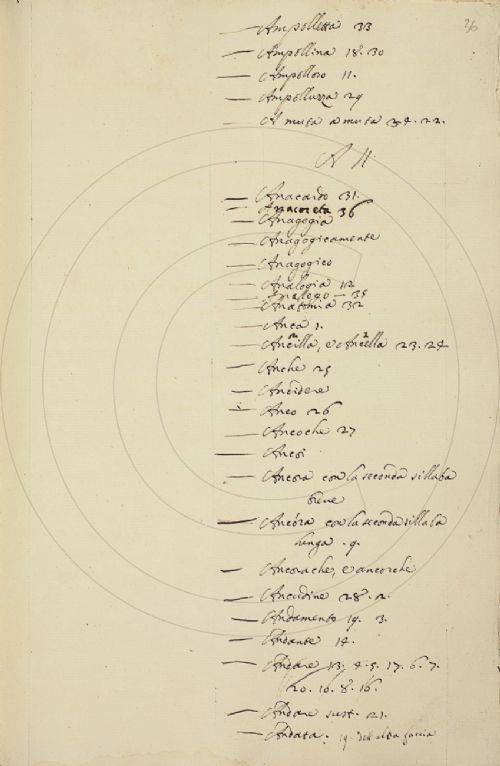 26
— Ampolletta 33
— Ampollina 18. 30
— Ampolloso 11.
— Ampolluzza 29
— A muta a muta 34. 22.
A N
— Anacardo 31.
— Anacoreta 36
— Anagogia
— Anagogicamente
— Anagogico
— Analogia 12
— Analogo — 35
— Anatomia 32
— Anca 1.
— Ancilla, e Ancella 23. 24
— Anche 25
— Ancidere
— Anco 26
— Ancoche 27
— Ancoi
— Ancora con la seconda sillaba
breve
— Ancóra con la seconda sillaba
lunga . 9.
— Ancorache, e ancorche
— Ancudine 28. 2.
— Andamento 19. 3.
— Andante 14.
— Andare 13. 4. 5. 17. 6. 7.
20. 10. 8. 16.
— Andare sust. 21.
— Andata . 19. dell altra faccia